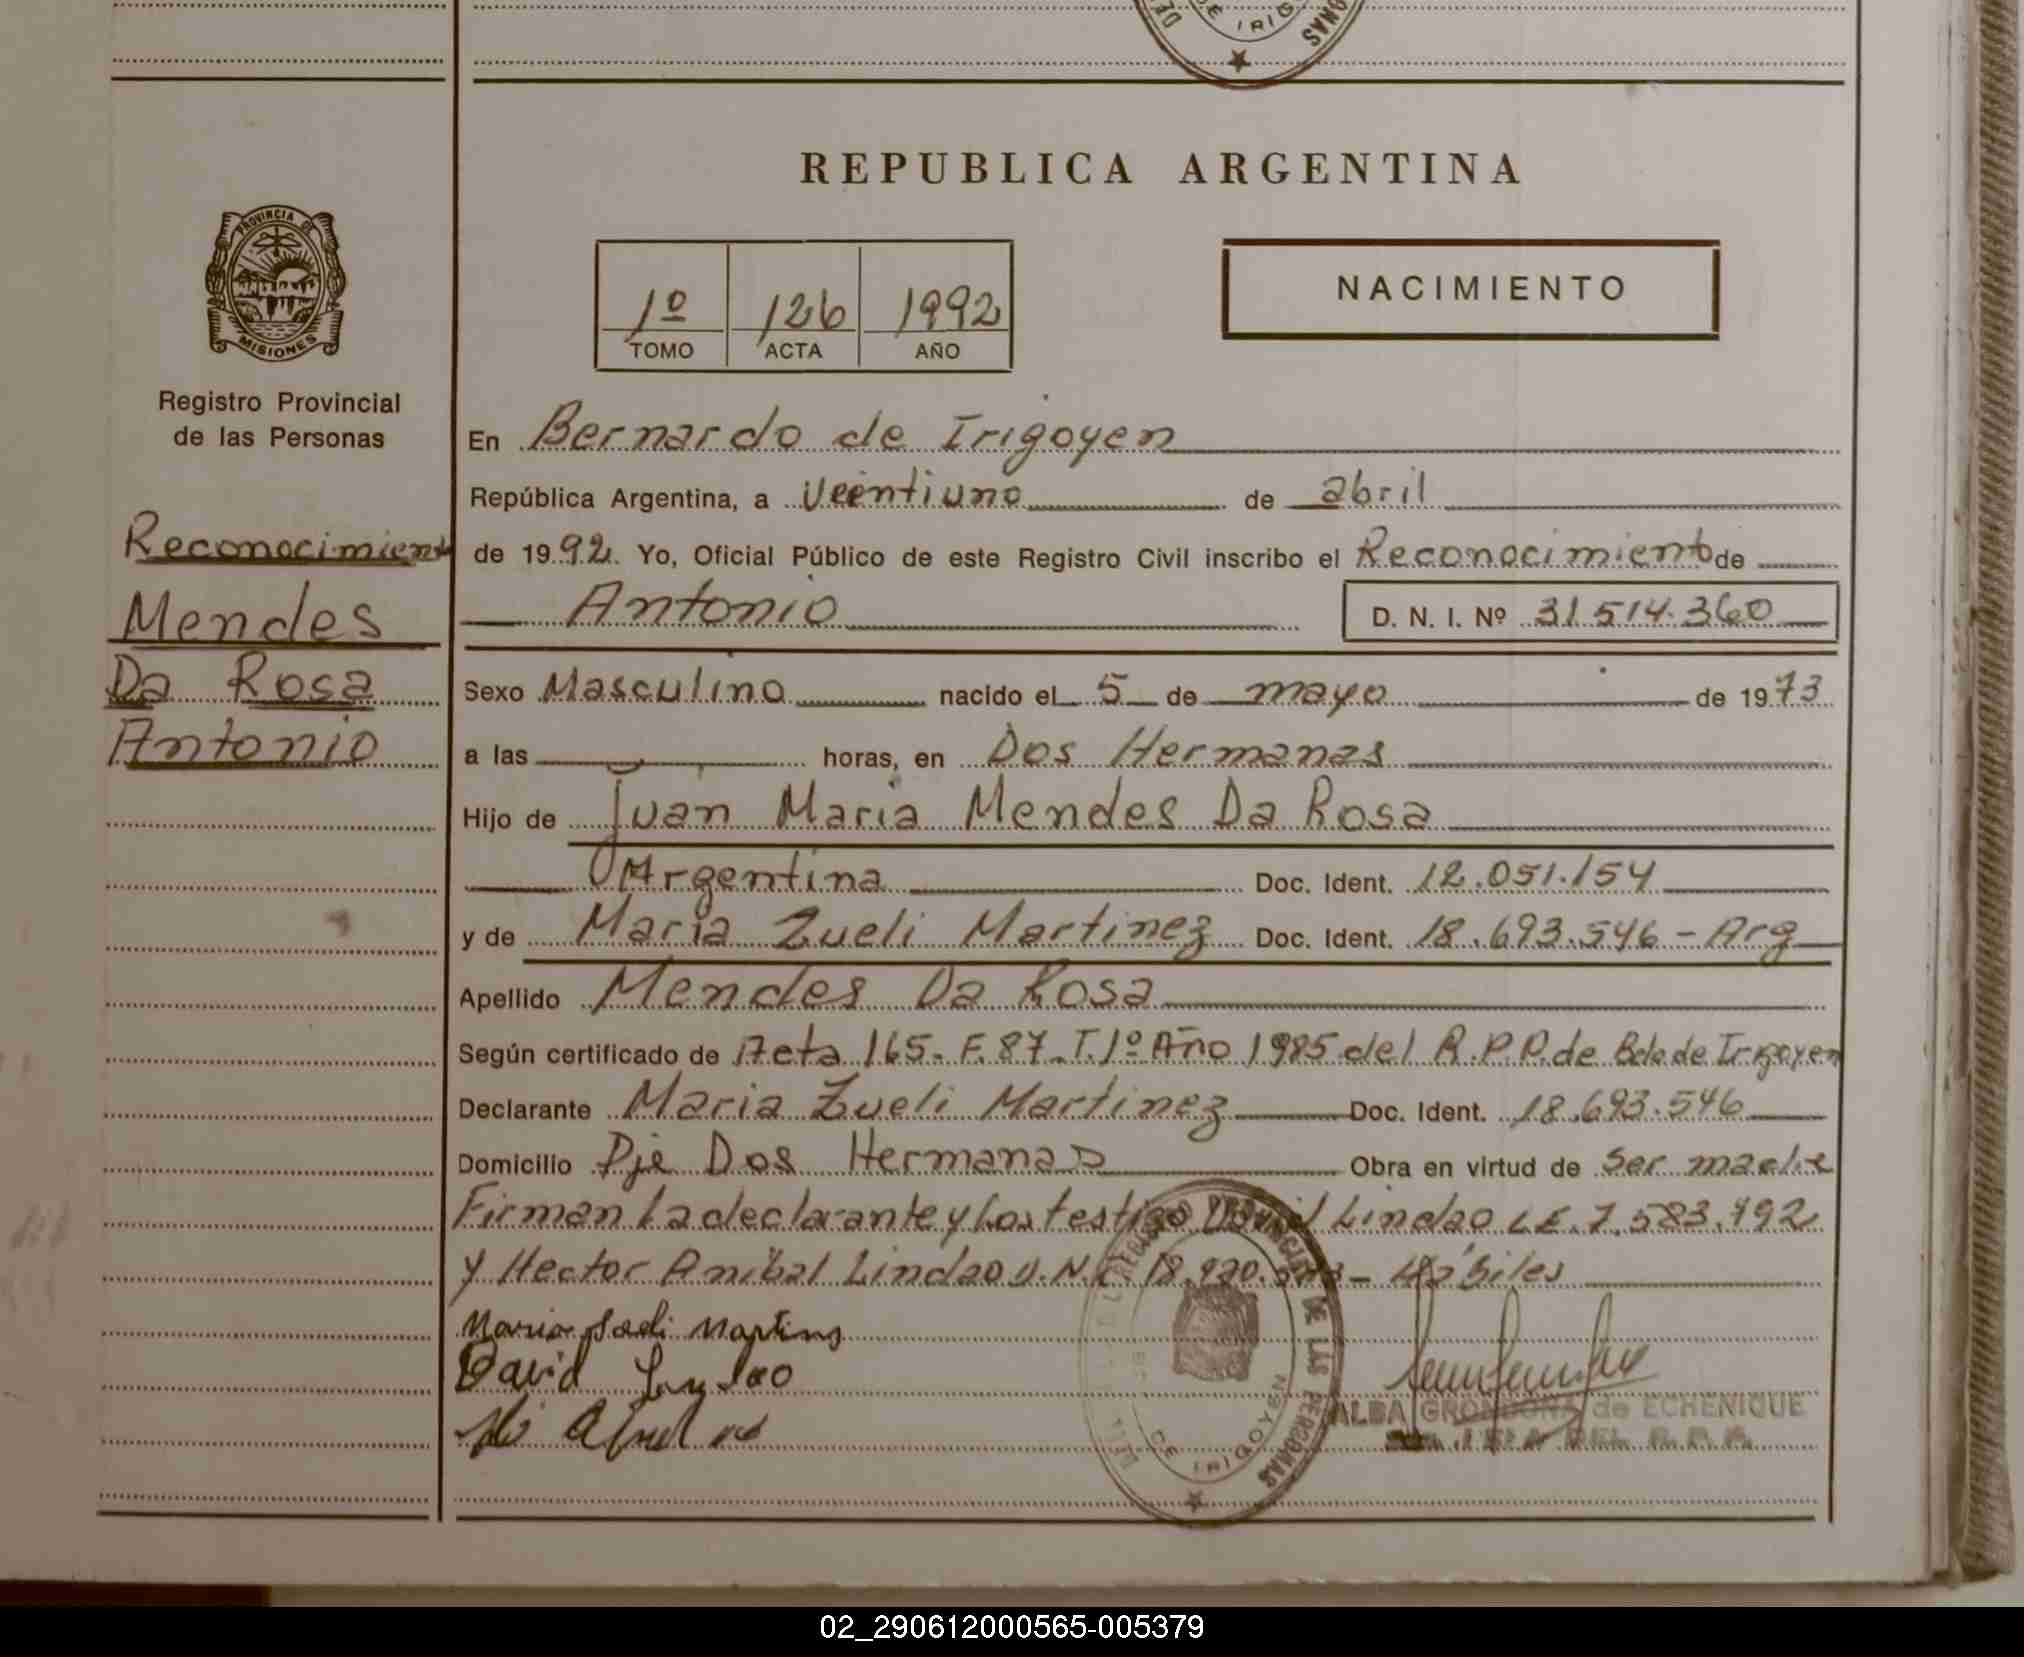 DE IRIGO
REPUBLICA ARGENTINA
PROVINCIA DE
MISIONES
1º 126 1992
TOMO ACTA AÑO
NACIMIENTO
Registro Provincial
de las Personas
Reconocimiento
Mendes
Da Rosa
Antonio
En Bernardo de Irigoyen
República Argentina, a veintiuno de abril
de 1992. Yo, Oficial Público de este Registro Civil inscribo el Reconocimiento de
Antonio D. N. I. Nº 31.514.360
Sexo Masculino nacido el 5 de mayo de 1973
a las horas, en Dos Hermanas
Hijo de Juan Maria Mendes Da Rosa
Argentina Doc. Ident. 12.051.154
y de Maria Zueli Martinez Doc. Ident. 18.693.546 - Arg
Apellido Mendes Da Rosa
Según certificado de Acta 165. F. 87. T. 1º Año 1985 del R.P.P. de Bdo de Irigoyen
Declarante Maria Zueli Martinez Doc. Ident. 18.693.546
Domicilio Pje Dos Hermanas Obra en virtud de ser madre
Firman la declarante y los testigo David Lindao L.E. 7.583.992
y Hector Anibal Lindao D.N.I. 18.920. - Hábiles
David
ALBA GRONDONA de ECHENIQUE
DEL R. P. P.
PROVINCIAL DE LAS PERSONAS
DE IRIGOYEN
02_290612000565-005379